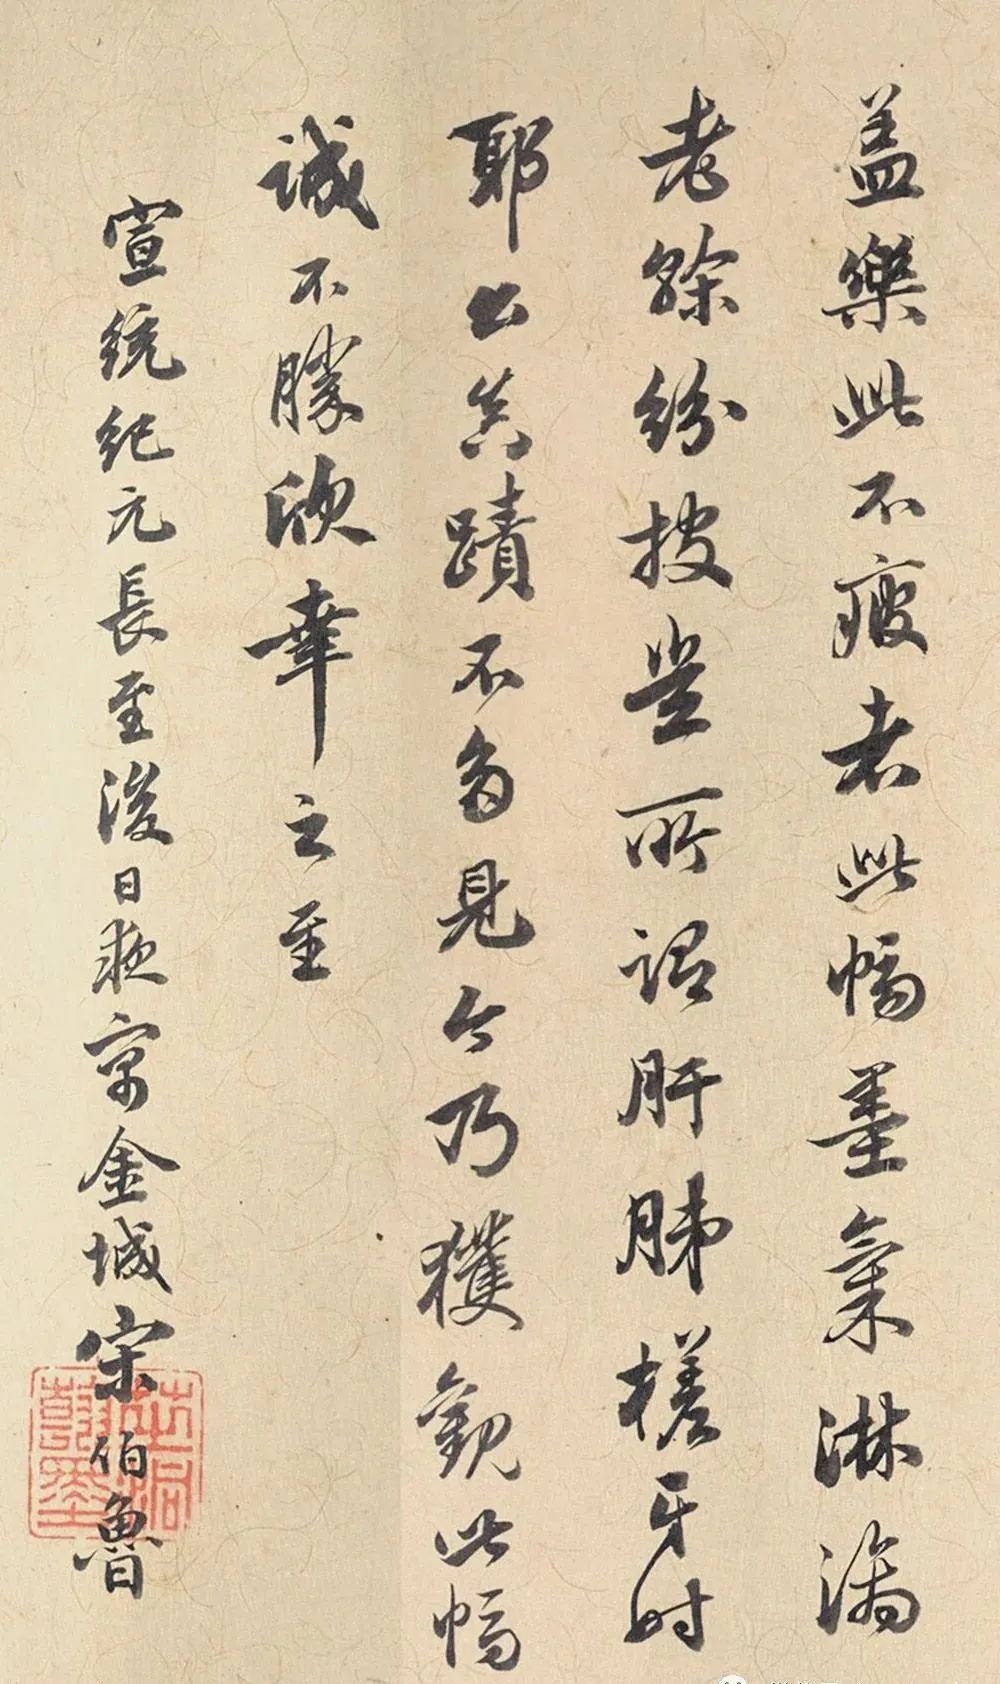 盖樂此不疲者此幅墨氣淋漓
老榦紛披豈所謂肝肺槎牙時
耶公真蹟不多見今乃獲觀此幅
誠不勝欣幸之至
宣統紀元長至後日寓金城宋伯魯
芝洞翰墨